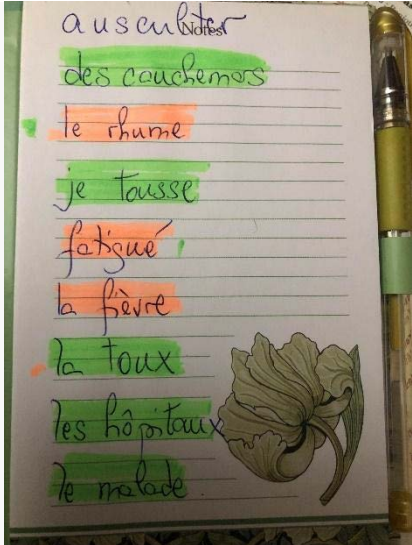 ausculter
Notes
des cauchemars
le rhume
je tousse
fatigué
la fièvre
la toux
les hôpitaux
le malade